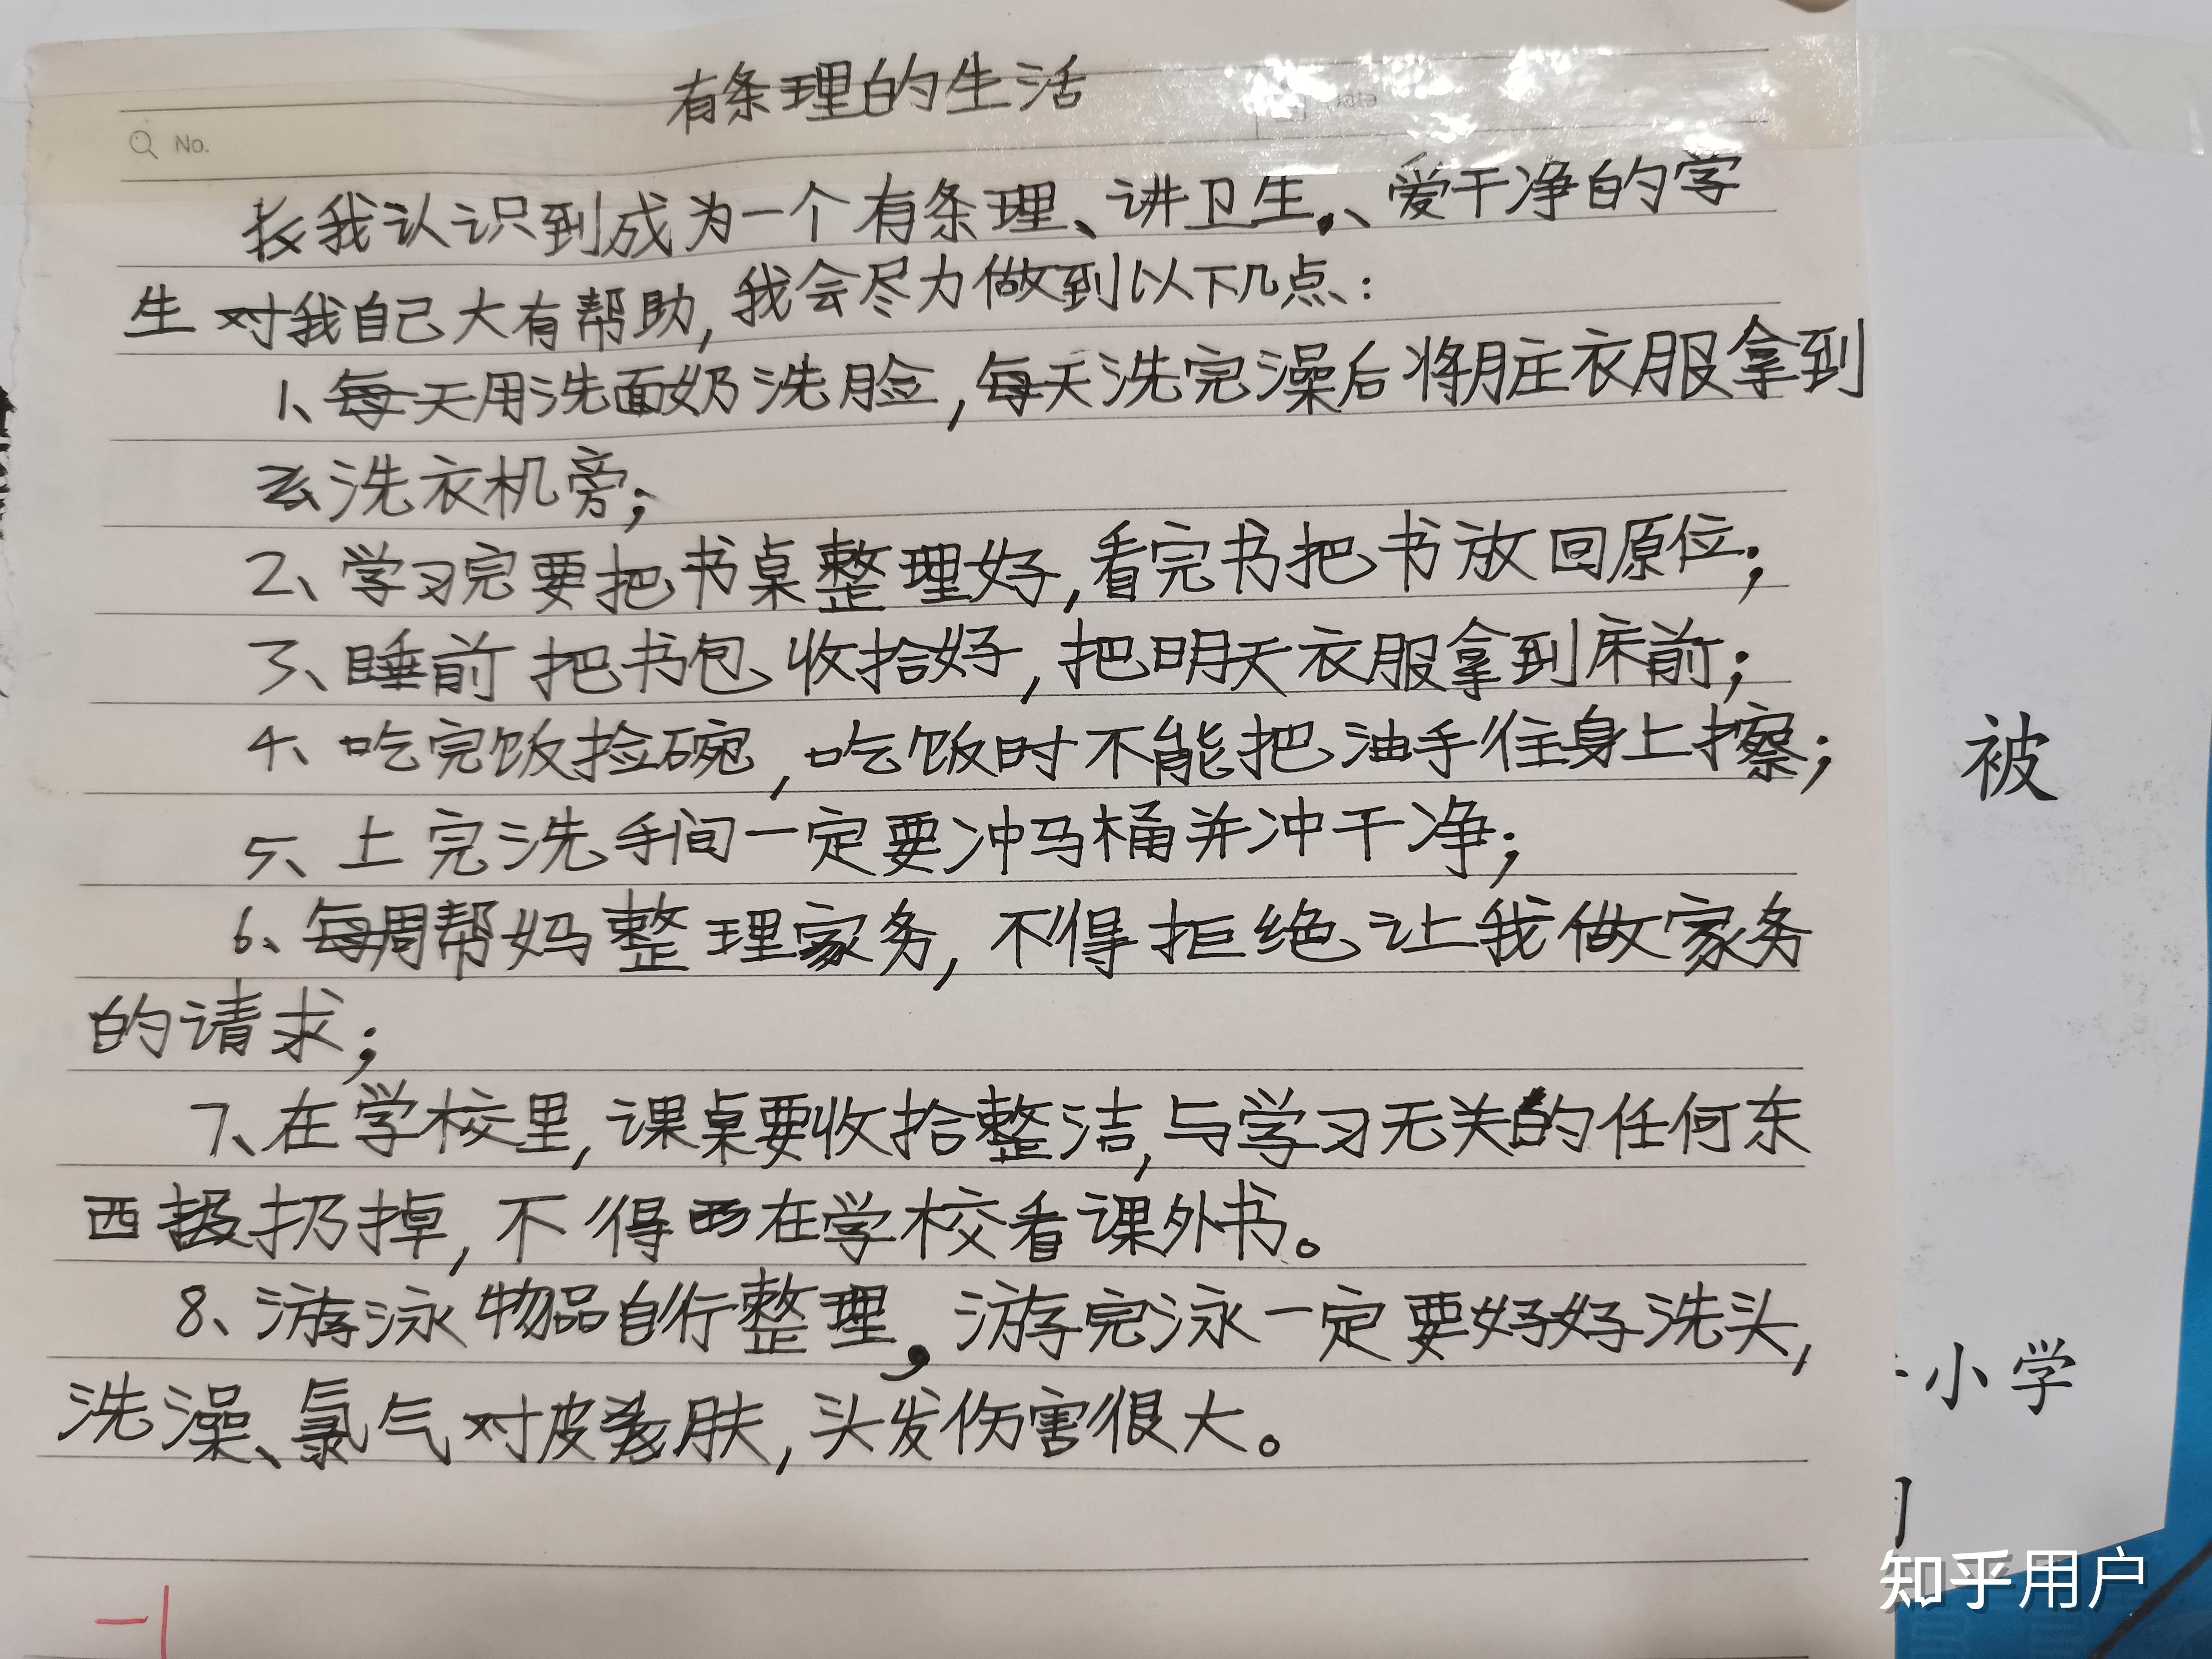 有条理的生活
No.
我认识到成为一个有条理、讲卫生、爱干净的学
生对我自己大有帮助,我会尽力做到以下几点:
1、每天用洗面奶洗脸,每天洗完澡后将脏衣服拿到
去洗衣机旁;
2、学习完要把书桌整理好,看完书把书放回原位;
3、睡前把书包收拾好,把明天衣服拿到床前;
4、吃完饭捡碗,吃饭时不能把油手往身上擦;
5、上完洗手间一定要冲马桶并冲干净;
6、每周帮妈整理家务,不得拒绝让我做家务
的请求;
7、在学校里,课桌要收拾整洁,与学习无关的任何东
西扔掉,不得在学校看课外书。
8、游泳物品自行整理,游完泳一定要好好洗头,
洗澡、氯气对皮肤,头发伤害很大。
被
小学
知乎用户